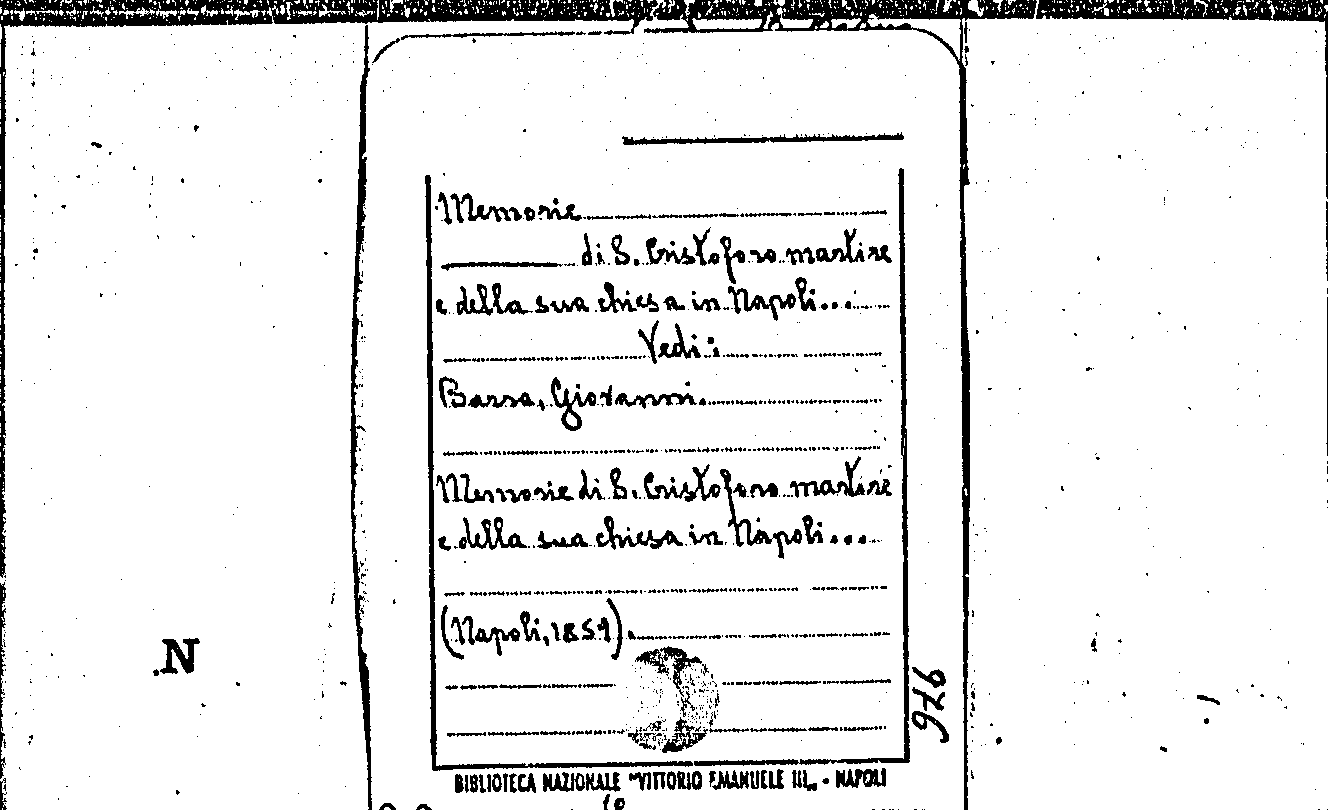 Memorie
di S. Cristoforo martire
e della sua chiesa in Napoli...
Vedi:
Barra, Giovanni.
Memorie di S. Cristoforo martire
e della sua chiesa in Napoli...
(Napoli, 1859).
N
976
BIBLIOTECA NAZIONALE "VITTORIO EMANUELE III„ - NAPOLI